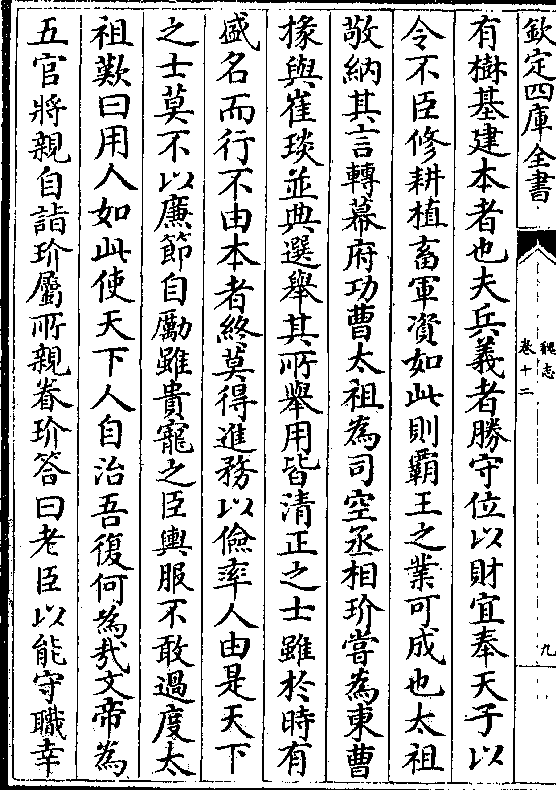 欽定四庫全書
魏志
卷十二
九
有樹基建本者也夫兵義者勝守位以財宜奉天子以
令不臣修耕植畜軍資如此則霸王之業可成也太祖
敬納其言轉幕府功曹太祖為司空丞相玠嘗為東曹
掾與崔琰並典選舉其所舉用皆清正之士雖於時有
盛名而行不由本者終莫得進務以儉率人由是天下
之士莫不以廉節自勵雖貴寵之臣輿服不敢過度太
祖歎曰用人如此使天下人自治吾復何為哉文帝為
五官將親自詣玠屬所親眷玠答曰老臣以能守職幸